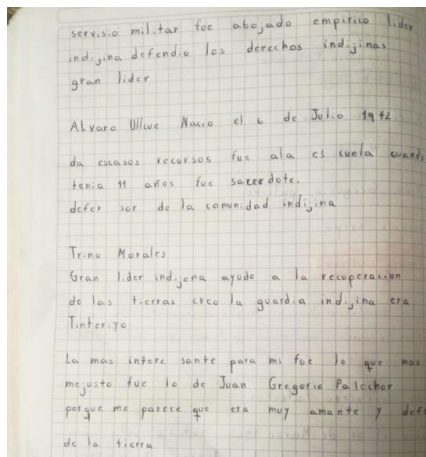 servisio militar fue abojado empirico lider
indijina defendio los derechos indijinas
gran lider
Alvaro Ullcue Nacio el 6 de Julio 1942
da escasos recursos fue ala es cuela cuando
tenia 11 años fue sacerdote.
defen sor de la comunidad indijina
Trino Morales
Gran lider indijena ayudo a la recuperacion
de las tierras creo la guardia indijina era
Tinteriyo
La mas intere sante para mi fue lo que mas
mejusto fue lo de Juan Gregorio Palechor
porque me parece que era muy amante y defe
de la tierra